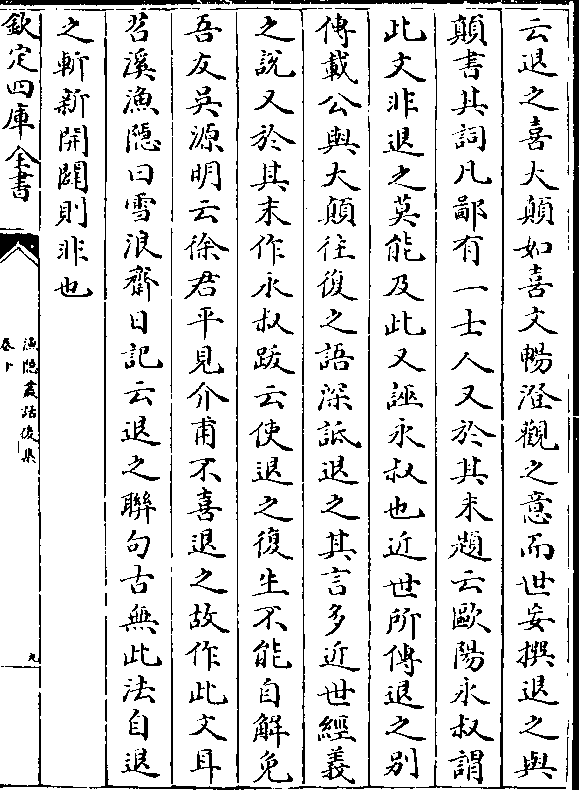 云退之喜大顛如喜文暢澄觀之意而世妄撰退之與
顛書其詞凡鄙有一士人又於其末題云歐陽永叔謂
此文非退之莫能及此又誣永叔也近世所傳退之别
傳載公與大顛往復之語深詆退之其言多近世經義
之說又於其末作永叔跋云使退之復生不能自解免
吾友吳源明云徐君平見介甫不喜退之故作此文耳
苕溪漁隱曰雪浪齋日記云退之聯句古無此法自退
之斬新開闢則非也
欽定四庫全書
漁隱叢話後集
卷十
九